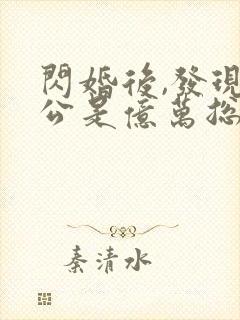 閃婚後,發現
公是億萬總
秦清水